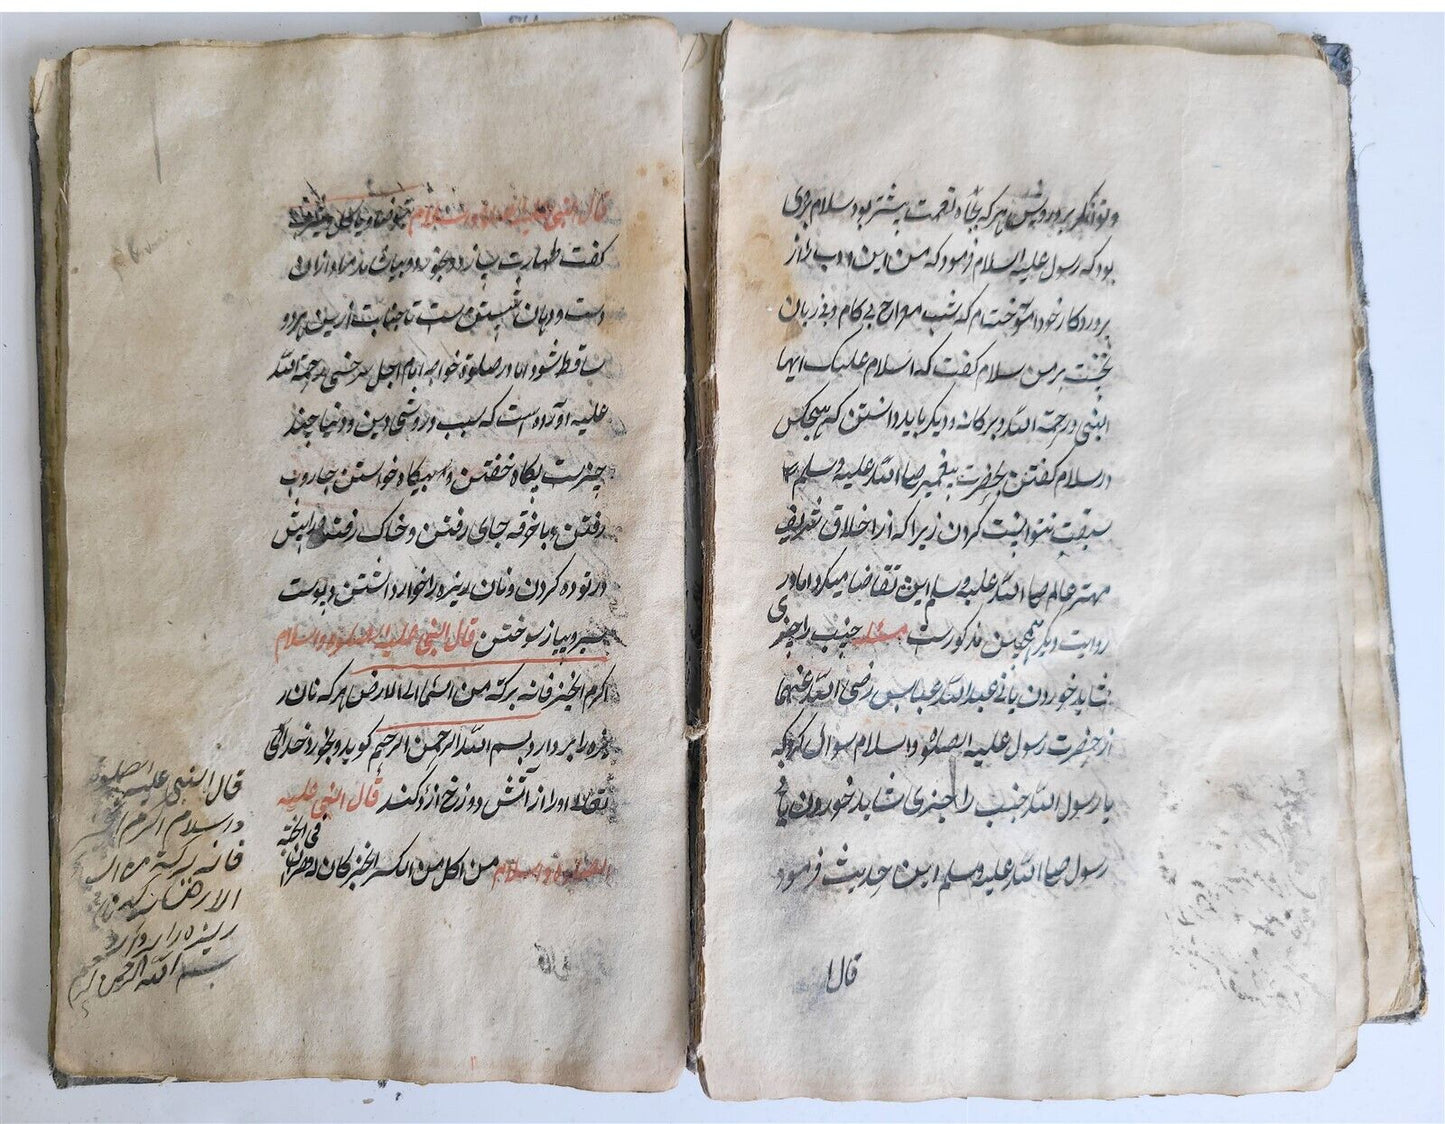 و توانگر بر درویش هر که بجاه و نعمت بیشتر بود سلام بروی
بود که رسول علیه السلام فرمود که من این ادب را از
پروردکار خود آموخته‌ام که شب معراج بی کام و بی زبان
نخست بر من سلام کفت که السلام علیک ایها
النبی و رحمة الله و برکاته و دیکر باید دانستن که هیچکس
در سلام کفتن بحضرت پیغمبر صلی الله علیه و سلم
سبقت نتوانست کردن زیرا که از اخلاق شریف
مهتر عالم صلی الله علیه و سلم این تقاضا میکرد اما در
روایت دیکر همچنین مذکورست مسئله جنب را چیزی
شاید خوردن یا نی عبد الله عباس رضی الله عنهما
از حضرت رسول علیه الصلوة و السلام سوال کرد که
یا رسول الله جنب را چیزی شاید خوردن یا نی
رسول صلی الله علیه وسلم این حدیث فرمود
قال
قال النبی علیه الصلوة و السلام
کفت طهارت
دست و دهان شستن است تا جنابت ازین هر دو
ساقط شود اما در صلوة خواجه امام اجل سرخسی رحمة الله
علیه آورده است که سبب درویشی دین و دنیا چند
چیزست پکاه خفتن و خواستن جاروب
رفتن و با خرقه جای رفتن و خاک رفتن
در توده کردن و نان ریزه را خوار داشتن و پوست
سیر و پیاز سوختن قال النبی علیه الصلوة و السلام
اکرم الخبز فانه برکة من السماء الی الارض هر که نان ر
یزه را بردارد و بسم الله الرحمن الرحیم کوید و بخورد خدای
تعالی او را از آتش دوزخ آزاد کند قال النبی علیه
فی الجنة
الصلوة و السلام من اکل من الکسر الخبز کان
قال النبی علیه الصلوة
و السلام اکرم
فانه برکة من
الارض هر که نان
ریزه را بردارد
بسم الله الرحمن